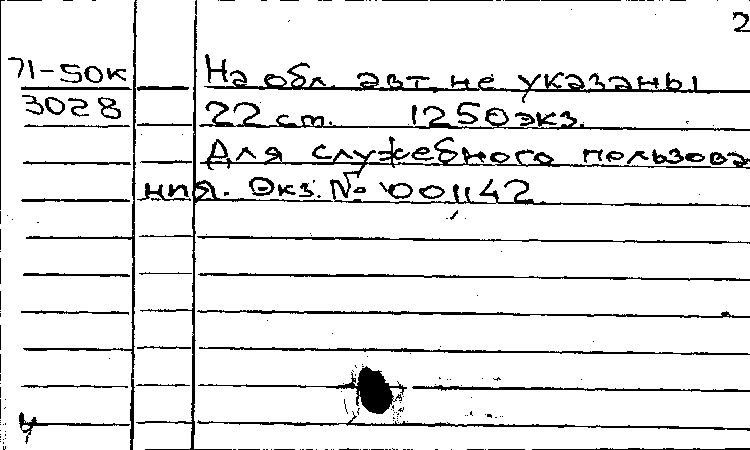 2
71-50к
3028
На обл. авт. не указаны
22 ст. 1250 экз.
Для служебного пользова
ния. Экз. № 001142